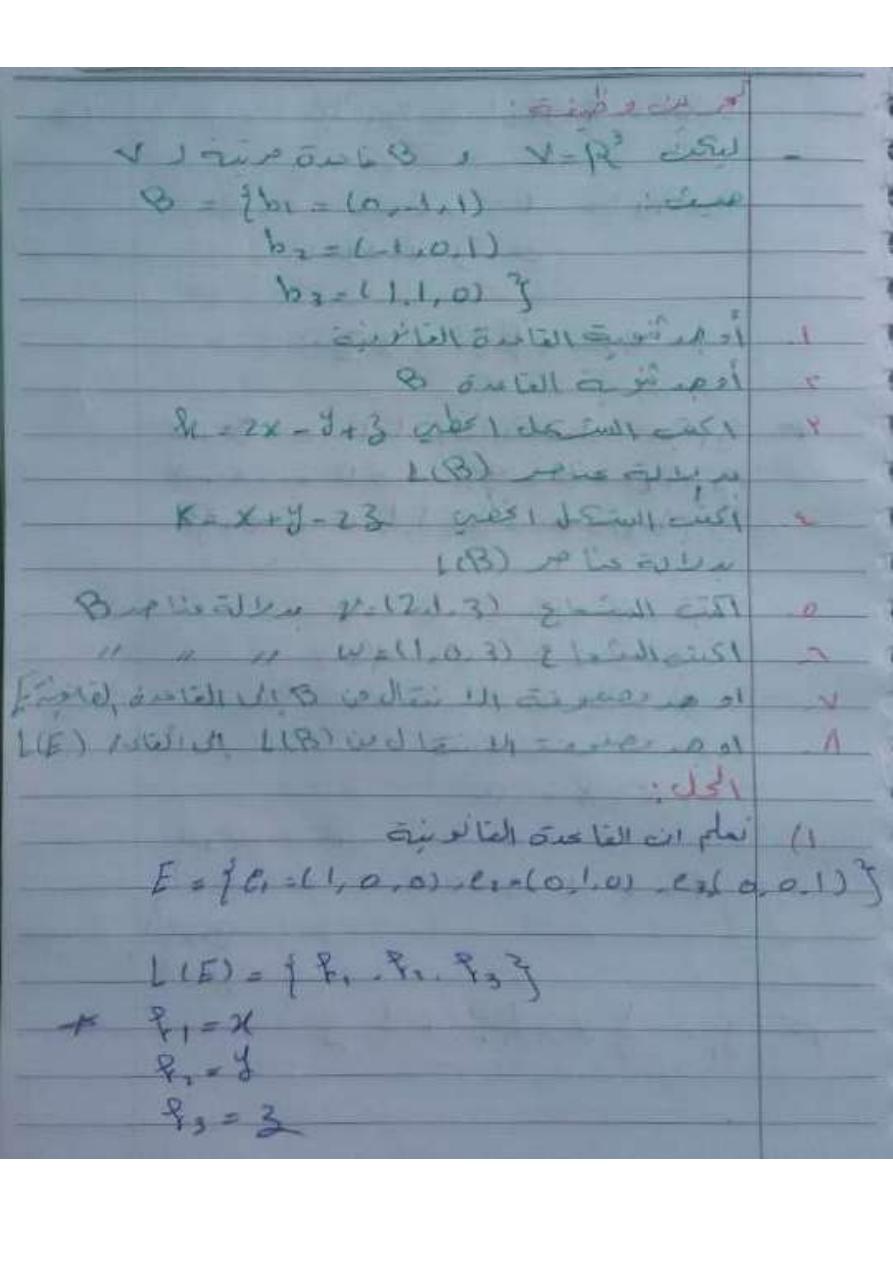 تمرين وظيفة :
- ليكن V = R³ و B قاعدة مرتبة لـ V
حيث : B = {b₁ = (0, -1, 1)
b₂ = (-1, 0, 1)
b₃ = (1, 1, 0) }
١. أوجد ثنوية القاعدة القانونية
٢. أوجد ثنوية القاعدة B
٣. اكتب الشكل الخطي h = 2x - y + z
بدلالة عناصر L(B)
٤. أكتب الشكل الخطي K = x + y - 2z
بدلالة عناصر L(B)
٥. اكتب الشعاع (2, 1, 3) بدلالة عناصر B
٦. اكتب الشعاع w = (1, 0, 3) " " "
٧. اوجد مصفوفة الانتقال من B إلى القاعدة القانونية E
٨. اوجد مصفوفة الانتقال من L(B) إلى القاعدة L(E)
الحل :
١) نعلم ان القاعدة القانونية
E = {e₁ = (1, 0, 0), e₂ = (0, 1, 0), e₃(0, 0, 1)}
L(E) = { f₁, f₂, f₃ }
* f₁ = x
f₂ = y
f₃ = z